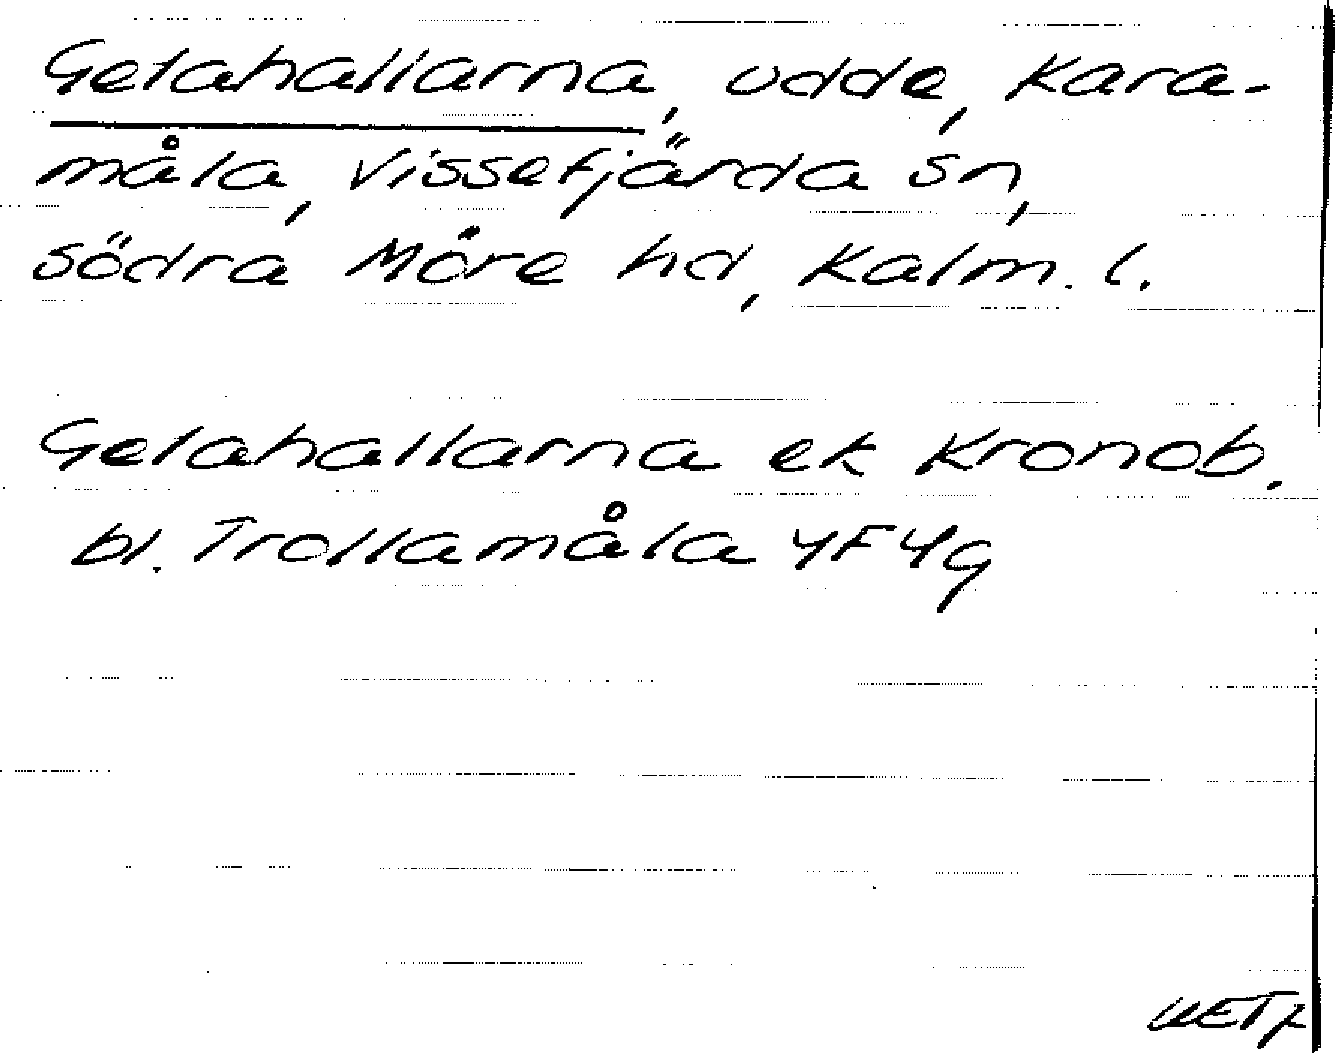 Getahallarna, udde, Kara-
måla, Vissefjärda sn,
södra Möre hd, Kalm. l.
Getahallarna ek Kronob.
bl. Trollamåla 4F4g